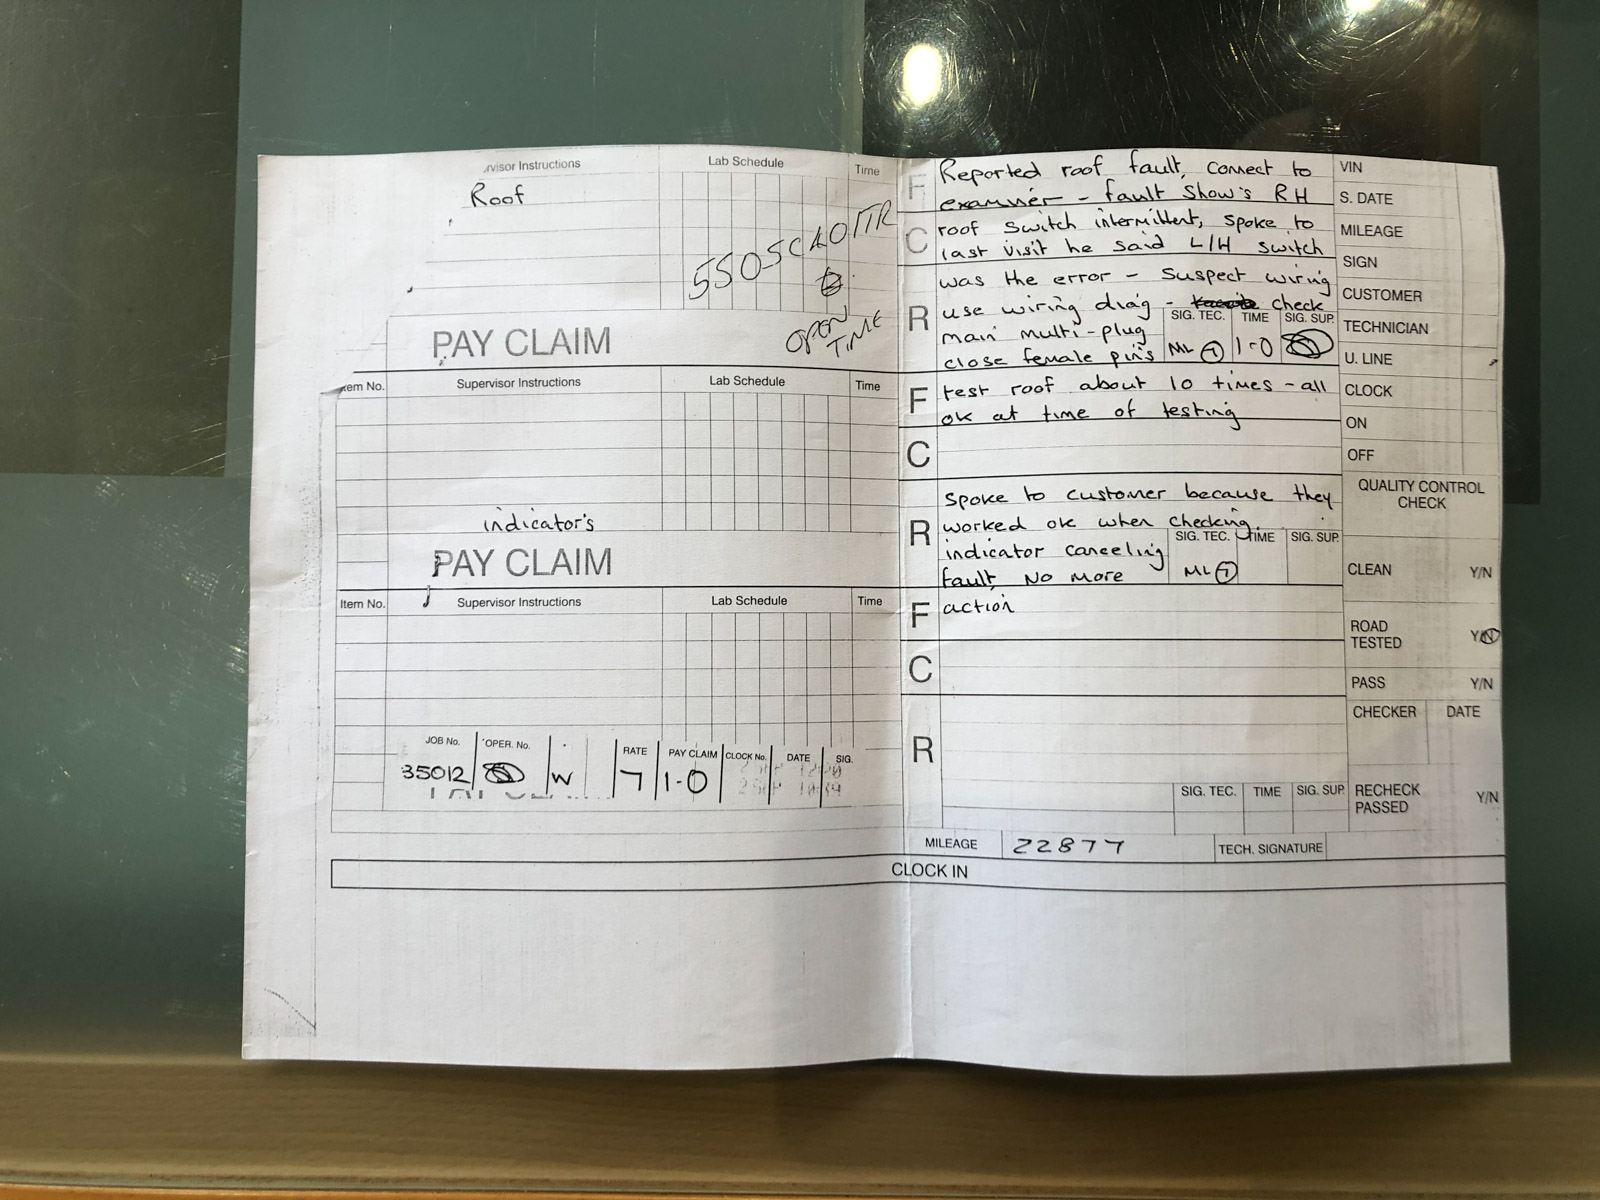 Supervisor Instructions Lab Schedule Time
Roof
550SCA01TR
OPEN
TIME
PAY CLAIM
Item No. Supervisor Instructions Lab Schedule Time
indicator's
PAY CLAIM
Item No. Supervisor Instructions Lab Schedule Time
JOB No. OPER. No. RATE PAY CLAIM CLOCK No. DATE SIG.
35012 W 7 1-0
F Reported roof fault, connect to
examiner - fault show's RH
C roof switch intermittent, spoke to
last visit he said L/H switch
was the error - Suspect wiring
R use wiring diag - check
main multi-plug SIG. TEC. TIME SIG. SUP.
close female pin's ML 7 1-0
F test roof about 10 times - all
ok at time of testing
C
spoke to customer because they
R worked ok when checking.
indicator canceling SIG. TEC. TIME SIG. SUP.
fault, No more ML 7
F action
C
R
SIG. TEC. TIME SIG. SUP.
MILEAGE 22877 TECH. SIGNATURE
CLOCK IN
VIN
S. DATE
MILEAGE
SIGN
CUSTOMER
TECHNICIAN
U. LINE
CLOCK
ON
OFF
QUALITY CONTROL
CHECK
CLEAN Y/N
ROAD
TESTED Y/N
PASS Y/N
CHECKER DATE
RECHECK
PASSED Y/N